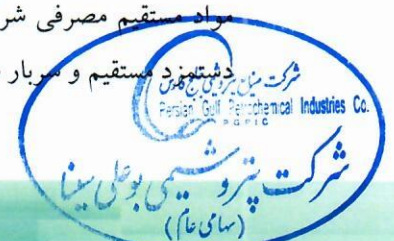 مواد مستقیم مصرفی شر
دستمزد مستقیم و سربار
شرکت صنایع پتروشیمی خلیج فارس
Persian Gulf Petrochemical Industries Co.
P G P I C
شرکت پتروشیمی بوعلی سینا
(سهامی عام)